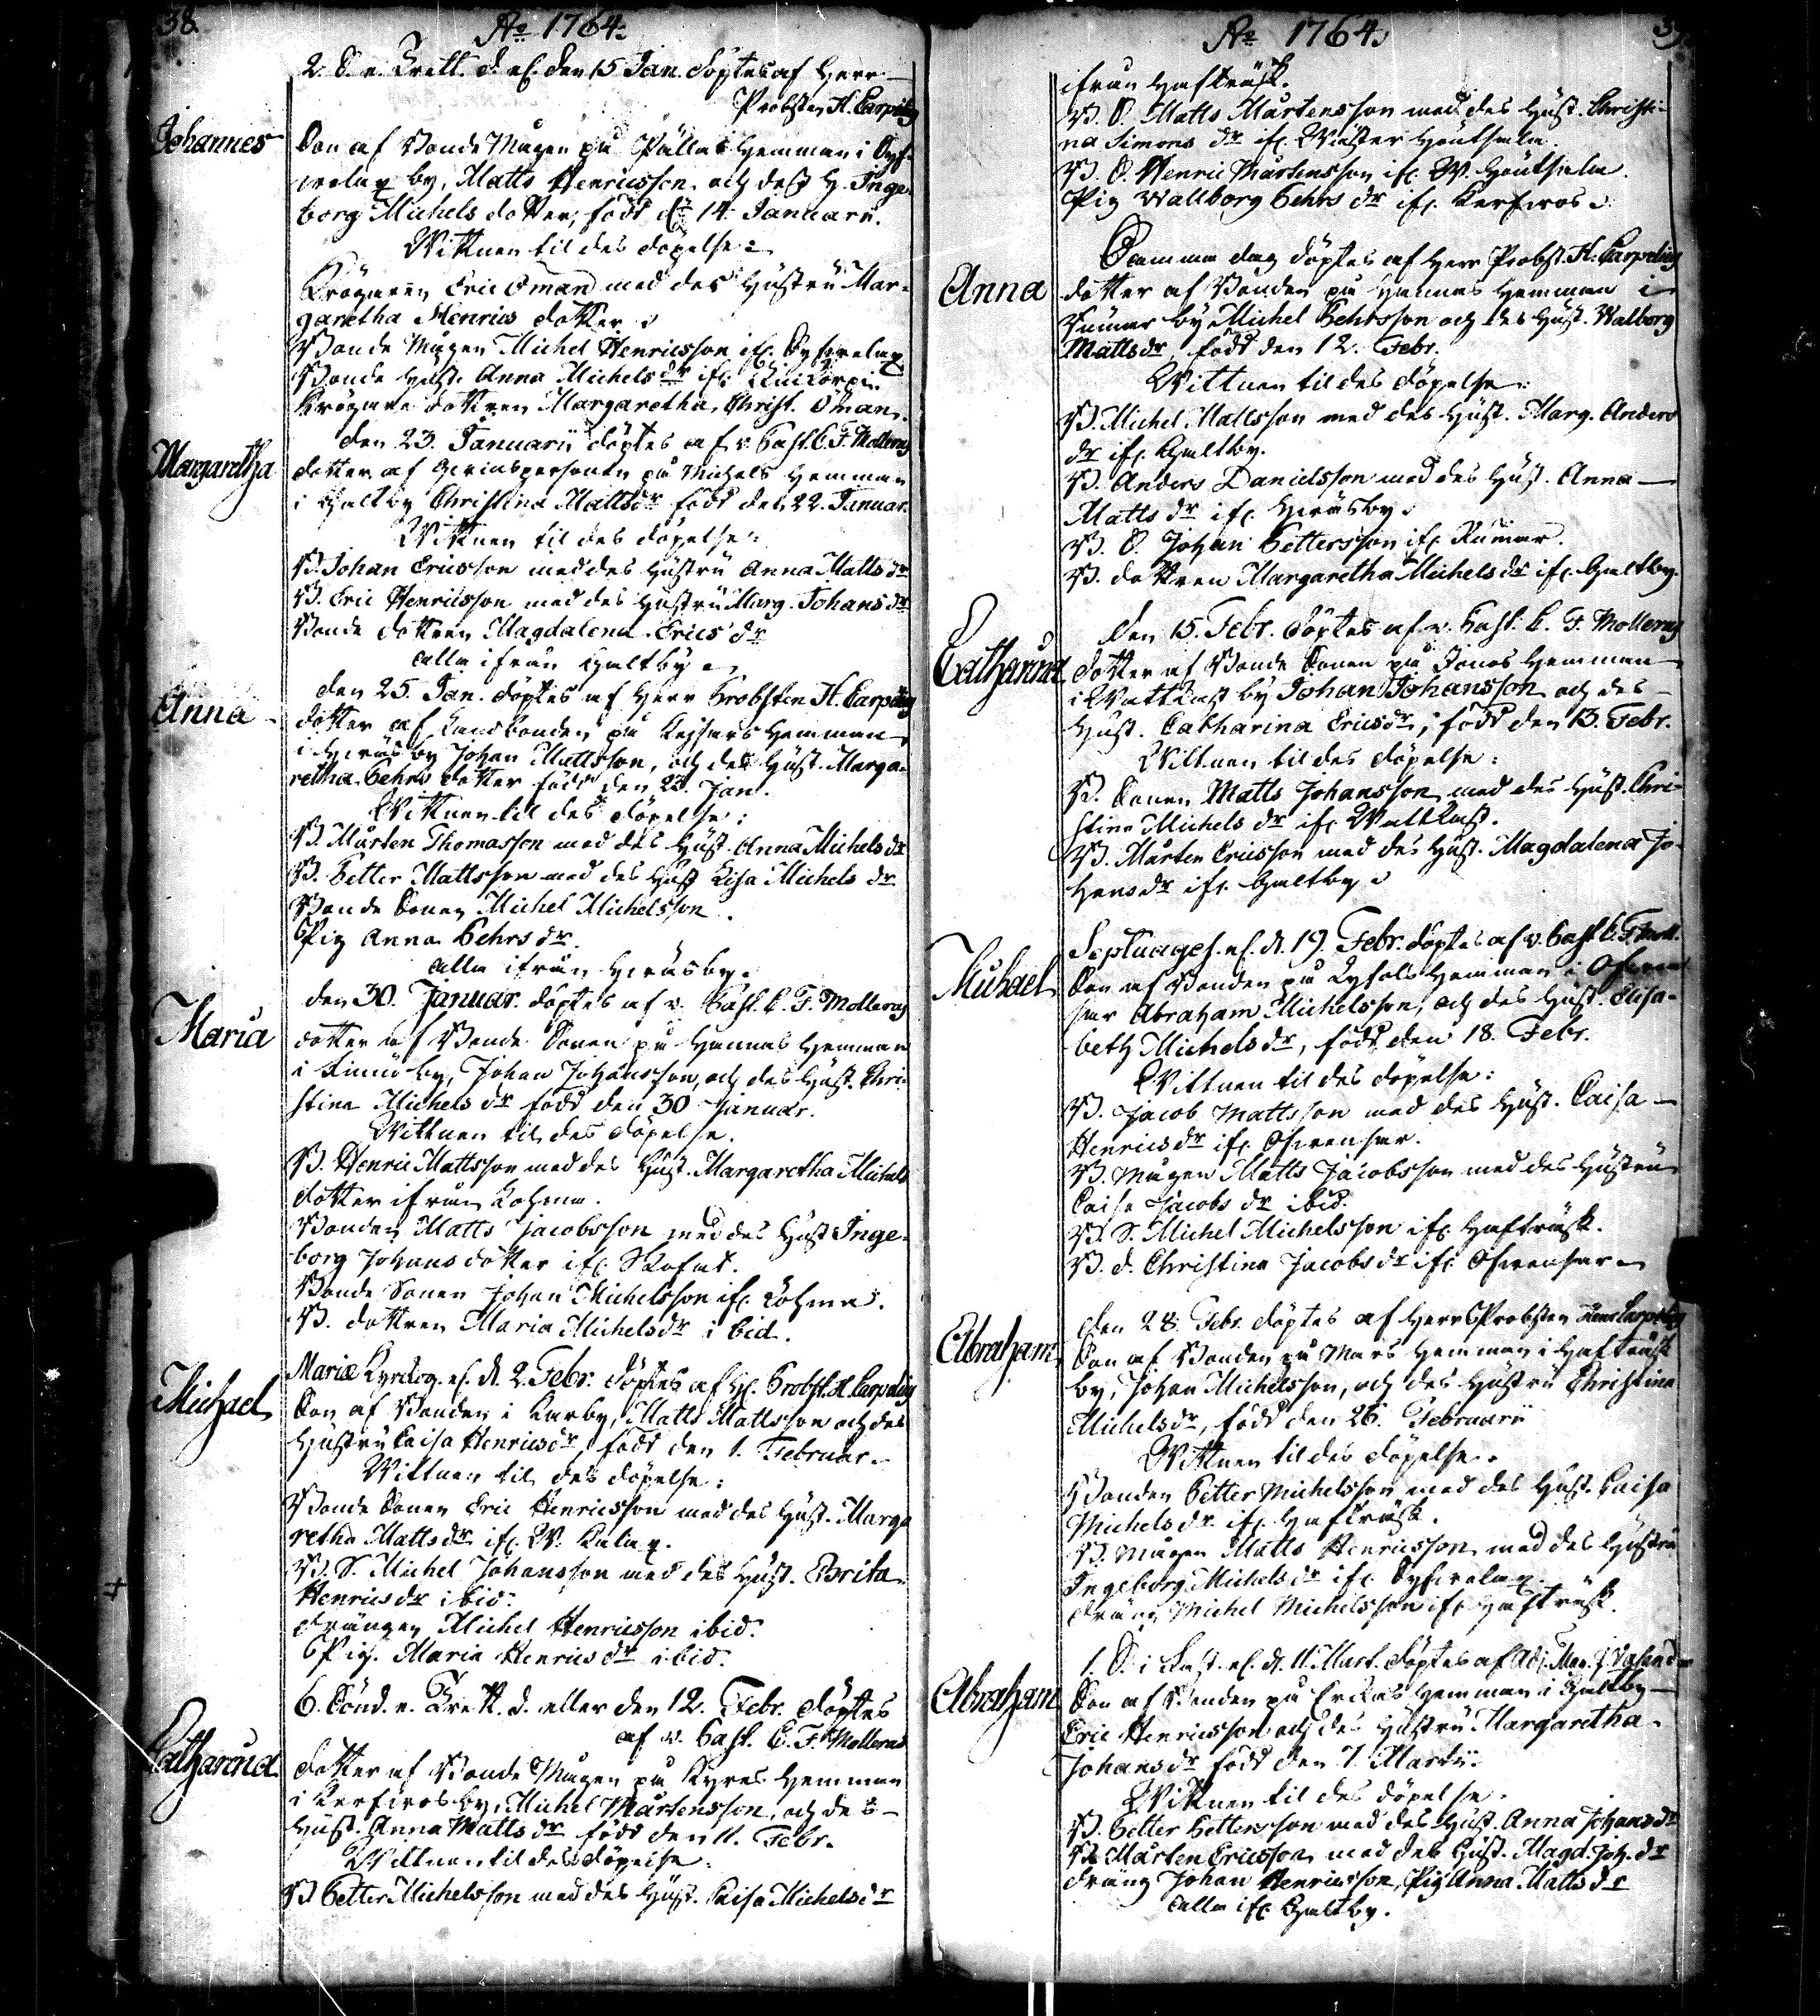 38.
Ao 1764.
2. S. e. Trett. d. ell. den 15 Jan. döptes af Herr
Probsten H. Carpelius
Johannes
Son af Bonde Mågen på Pällas Hemman i
by, Matts Henricsson och dess H. Inge-
borg Michels dotter, född d. 14 Januarii.
Wittnen til des döpelse:
Krögaren Eric Öman med des Hustru Mar-
garetha Henrics dotter
Bonde Mågen Michel Henricsson ifr.
Bonde Hust. Anna Michels dr ifr.
Krögare dottren Margaretha Christ. Öman.
den 23. Januarii döptes af v. Past. C. F. Mollerus
Margaretha
dotter af på Michels Hemman
i Galtby Christina Matts dr född den 22. Januar.
Wittnen til des döpelse:
B. Johan Ericsson med des Hustru Anna Matts dr
B. Eric Henricsson med des Hustru Marg. Johans dr
Bonde dottren Magdalena Erics dr
alla ifrån Galtby
den 25. Jan. döptes af Herr Probsten H. Carpelius
Anna
dotter af Landbonden på Keisars Hemman
i by Johan Mattsson, och des Hust. Marga-
retha Pehrs dotter född den 23. Jan.
Wittnen til des döpelse:
B. Mårten Thomasson med des Hust. Anna Michels dr
B. Petter Mattsson med des Hust. Lisa Michels dr
Bonde Sonen Michel Michelsson.
Pig. Anna Pehrs dr.
alla ifrån
den 30. Januar. döptes af v. Past. C. F. Mollerus
Maria
dotter af Bonde Sonen på Hannas Hemman
i by, Johan Johansson, och des Hust. Chri-
stina Michels dr född den 30 Januar.
Wittnen til des döpelse.
B. Henric Mattsson med des Hust. Margaretha Michels
dotter ifrån Lohma.
Bonden Matts Jacobsson med des Hust. Inge-
borg Johans dotter ifr.
Bonde Sonen Johan Michelsson ifr. Lohma.
B. dottren Maria Michels dr ibid.
Mariæ Kyrckog. ell. d. 2. Febr. döptes af H. Probst. H. Carpelius
Michael
Son af Bonden i Karby, Matts Mattsson och des
Hustru Caisa Henrics dr, född den 1. Februar.
Wittnen til des döpelse:
Bonde Sonen Eric Henricsson med des Hust. Marga
retha Matts dr ifr. W. Kalax.
B. S. Michel Johansson med des Hust. Brita
Henrics dr ibid.
drängen Michel Henricsson ibid.
Pig. Maria Henrics dr ibid.
6. Sönd. e. Trett. d. eller den 12. Febr. döptes
af v. Past. C. F. Mollerus
Catharina
dotter af Bonde Mågen på Hemman
i by, Michel Mårtensson, och des
Hust. Anna Matts dr född den 11. Febr.
Wittnen til des döpelse.
B. Petter Michelsson med des Hust. Caisa Michels dr
39.
Ao 1764.
ifrån Hafträsk.
B. S. Matts Mårtensson med des Hust. Christi-
na Simons dr ifr. Wäster
B. S. Henric Mårtensson ifr. W.
Pig Wallborg Pehrs dr ifr.
Samma dag döptes af Herr Probst. H. Carpelius
Anna
dotter af Bonden på Hannas Hemman i
by Michel Pehrsson och des Hust. Walborg
Matts dr, född den 12. Febr.
Wittnen til des döpelse:
B. Michel Mattsson med des Hust. Marg. Anders
dr ifr. Galtby.
B. Anders Danielsson med des Hust. Anna
Matts dr ifr.
B. S. Johan Pettersson ifr.
B. dottren Margaretha Michels dr ifr. Galtby.
den 15. Febr. döptes af v. Past. C. F. Mollerus
Catharina
dotter af Bonde Sonen på Jonas Hemman
i Wattkast by Johan Johansson och des
Hust. Catharina Erics dr, född den 13. Febr.
Wittnen til des döpelse:
B. Sonen Matts Johansson med des Hust. Chri-
stina Michels dr ifr. Wattkast.
B. Mårten Ericsson med des Hust. Magdalena Jo-
hans dr ifr. Galtby
Septuages. ell. d. 19. Febr. döptes af v. Past. C. F. Moll.
Michael
Son af Bonden på Hemman i
Abraham Michelsson, och des Hust. Elisa-
beth Michels dr, född den 18. Febr.
Wittnen til des döpelse:
B. Jacob Mattsson med des Hust. Caisa
Henrics dr ifr.
B. Mågen Matts Jacobsson med des Hustru
Caisa Jacobs dr ibid.
B. S. Michel Michelsson ifr. Hafträsk.
B. d. Christina Jacobs dr ifr.
den 28. Febr. döptes af Herr Probsten Henr. Carpelius
Abraham
Son af Bonden på Mars Hemman i Hafträsk
by, Johan Michelsson, och des Hustru Christina
Michels dr, född den 26. Februarii
Wittnen til des döpelse.
Bonden Petter Michelsson med des Hust. Caisa
Michels dr ifr. Hafträsk.
B. Mågen Matts Henricsson med des Hustru
Ingeborg Michels dr ifr.
dräng Michel Michelsson ifr. Hafträsk.
1. S. i Fast. ell. d. 11. Mart. döptes af
Abraham
Son af Bonden på Erckas Hemman i Galtby
Eric Henricsson och des Hustru Margaretha
Johans dr född den 7. Martii.
Wittnen til des döpelse.
B. Petter Pettersson med des Hust. Anna Johans dr
B. Mårten Ericsson med des Hust. Magd. Joh. dr
dräng Johan Henricsson, Pig Anna Matts dr
alla ifr. Galtby.